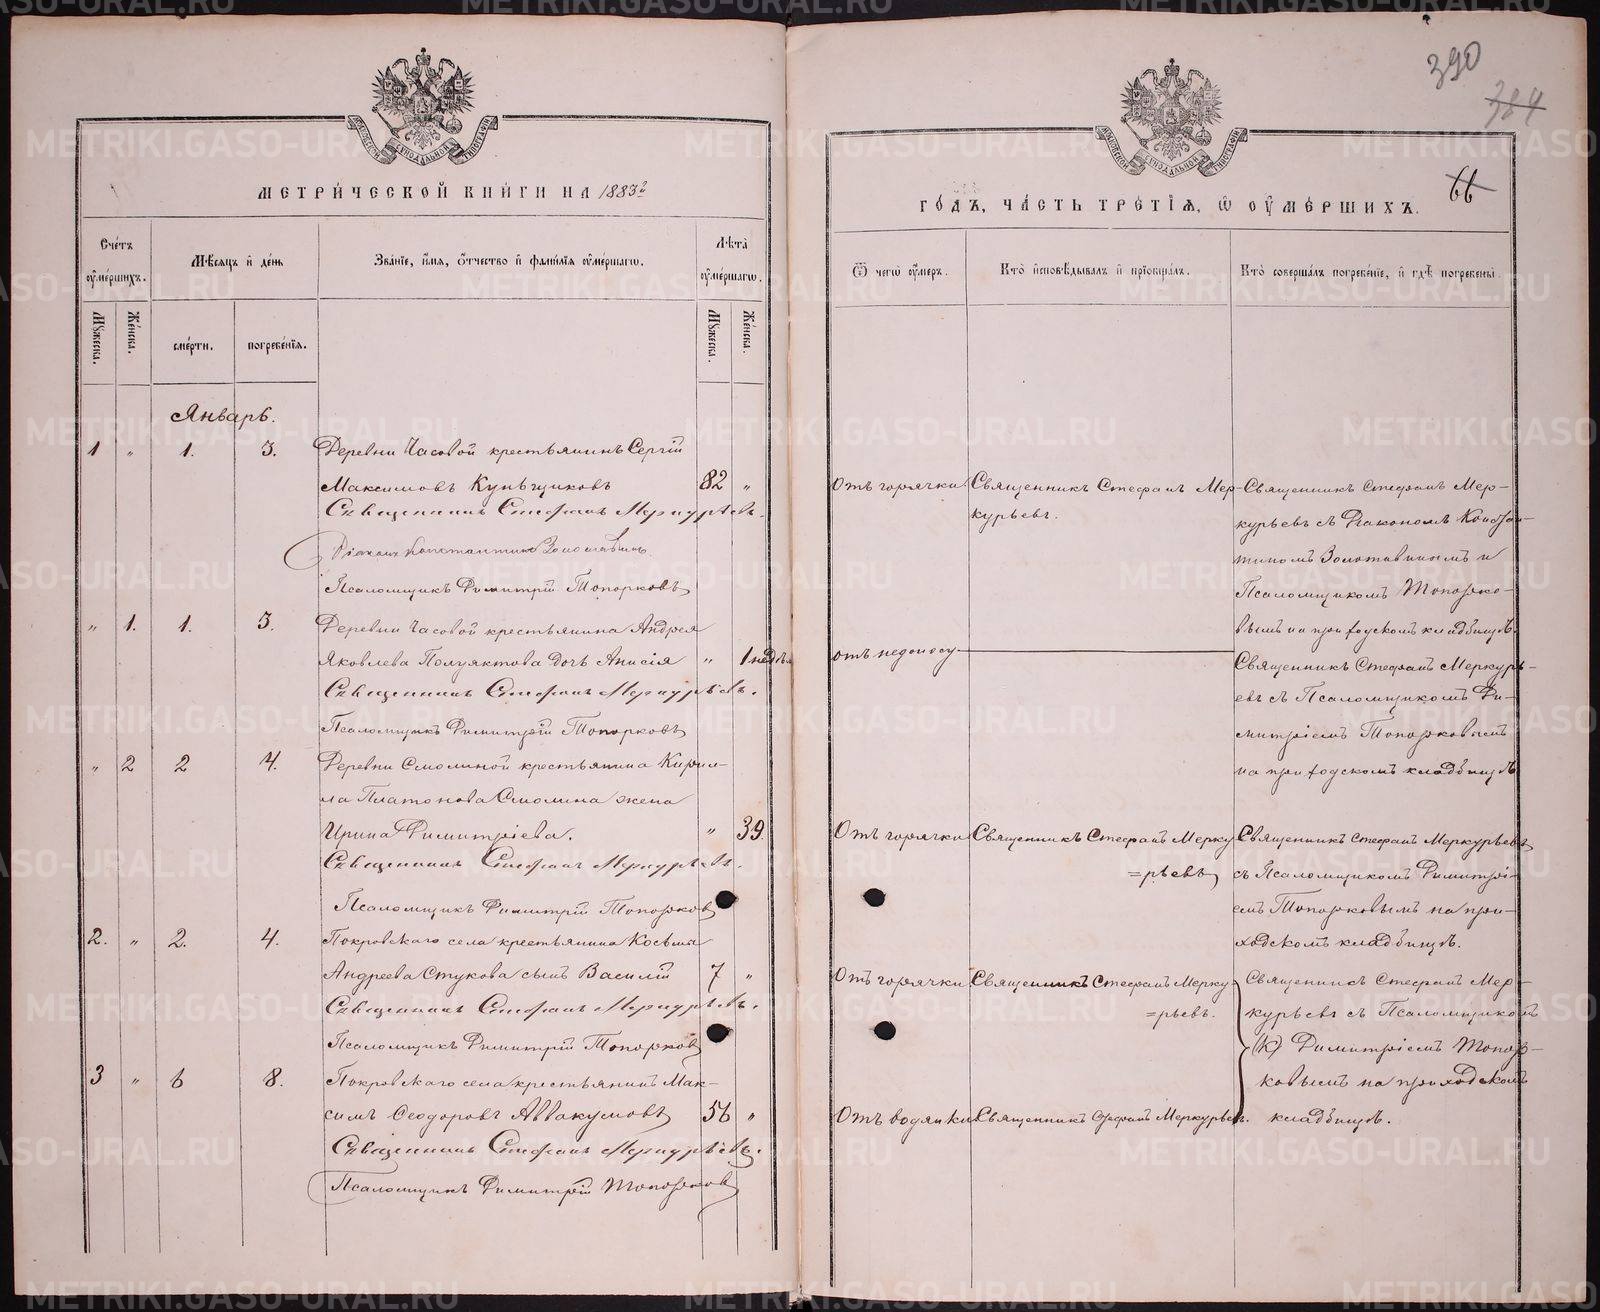 МЕТРИ́ЧЕСКОЙ КНИ́ГИ НА 1883 г
Сче́тъ ᲂу҆ме́ршихъ.
Мѣ́сяцъ и҆ де́нь
Зва́нїе, и҆́мя, ѻ҆́тчество и҆ фами́лїя ᲂу҆ме́ршагѡ.
Лѣ́та ᲂу҆ме́ршагѡ.
Мꙋ́жеска.
Же́нска.
сме́рти.
погребе́нїя.
Мꙋ́жеска.
Же́нска.
Январь.
1 " 1. 3. Деревни Часовой крестьянинъ Сергій
Максимовъ Куньщиковъ 82 "
Священникъ Стефанъ Меркурьевъ.
Діаконъ Константинъ Золотавинъ
Псаломщикъ Димитрій Топорковъ
" 1. 1. 3. Деревни Часовой крестьянина Андрея
Яковлева Полуяктова дочь Анисія " 1 недѣля
Священникъ Стефанъ Меркурьевъ.
Псаломщикъ Димитрій Топорковъ
" 2 2 4. Деревни Смолиной крестьянина Кирил-
ла Платонова Смолина жена
Ирина Димитріева. " 39.
Священникъ Стефанъ Меркурьевъ.
Псаломщикъ Димитрій Топорков
2. " 2. 4. Покровскаго села крестьянина Косьмы
Андреева Стукова сынъ Василій 7 "
Священникъ Стефанъ Меркурьевъ.
Псаломщикъ Димитрій Топорков
3 " 6 8. Покровскаго села крестьянинъ Мак-
симъ Ѳеодоровъ Аввакумовъ 56 "
Священникъ Стефанъ Меркурьевъ.
Псаломщикъ Димитрій Топорков
390
384
66
ГО́ДЪ, ЧА́СТЬ ТРЕ́ТЇЯ, Ѡ҆ ОУ҆МЕ́РШИХЪ.
Ѿ чегѡ̀ ᲂу҆́меръ.
Кто̀ и҆сповѣ́дывалъ и҆ прїѡбща́лъ.
Кто̀ соверша́лъ погребе́нїе, и҆ гдѣ̀ погребены̀.
Отъ горячки Священникъ Стефанъ Мер-
курьевъ.
Священникъ Стефанъ Мер-
курьевъ съ Діакономъ Констан-
тиномъ Золотавинымъ и
Псаломщикомъ Топорко-
вымъ на приходскомъ кладбищѣ.
отъ недоносу
Священникъ Стефанъ Меркурь-
евъ съ Псаломщикомъ Ди-
митріемъ Топорковымъ
на приходскомъ кладбищѣ
Отъ горячки Священникъ Стефанъ Мерку
=рьевъ
Священникъ Стефанъ Меркурьевъ
съ Псаломщикомъ Димитрі-
емъ Топорковымъ на при-
ходскомъ кладбищѣ.
Отъ горячки Священникъ Стефанъ Мерку
=рьевъ.
Священникъ Стефанъ Мер-
курьевъ съ Псаломщиком
(к) Димитріемъ Топор-
ковымъ на приходскомъ
кладбищѣ.
Отъ водянки Священникъ Стефанъ Меркурьевъ.
METRIKI.GASO-URAL.RU